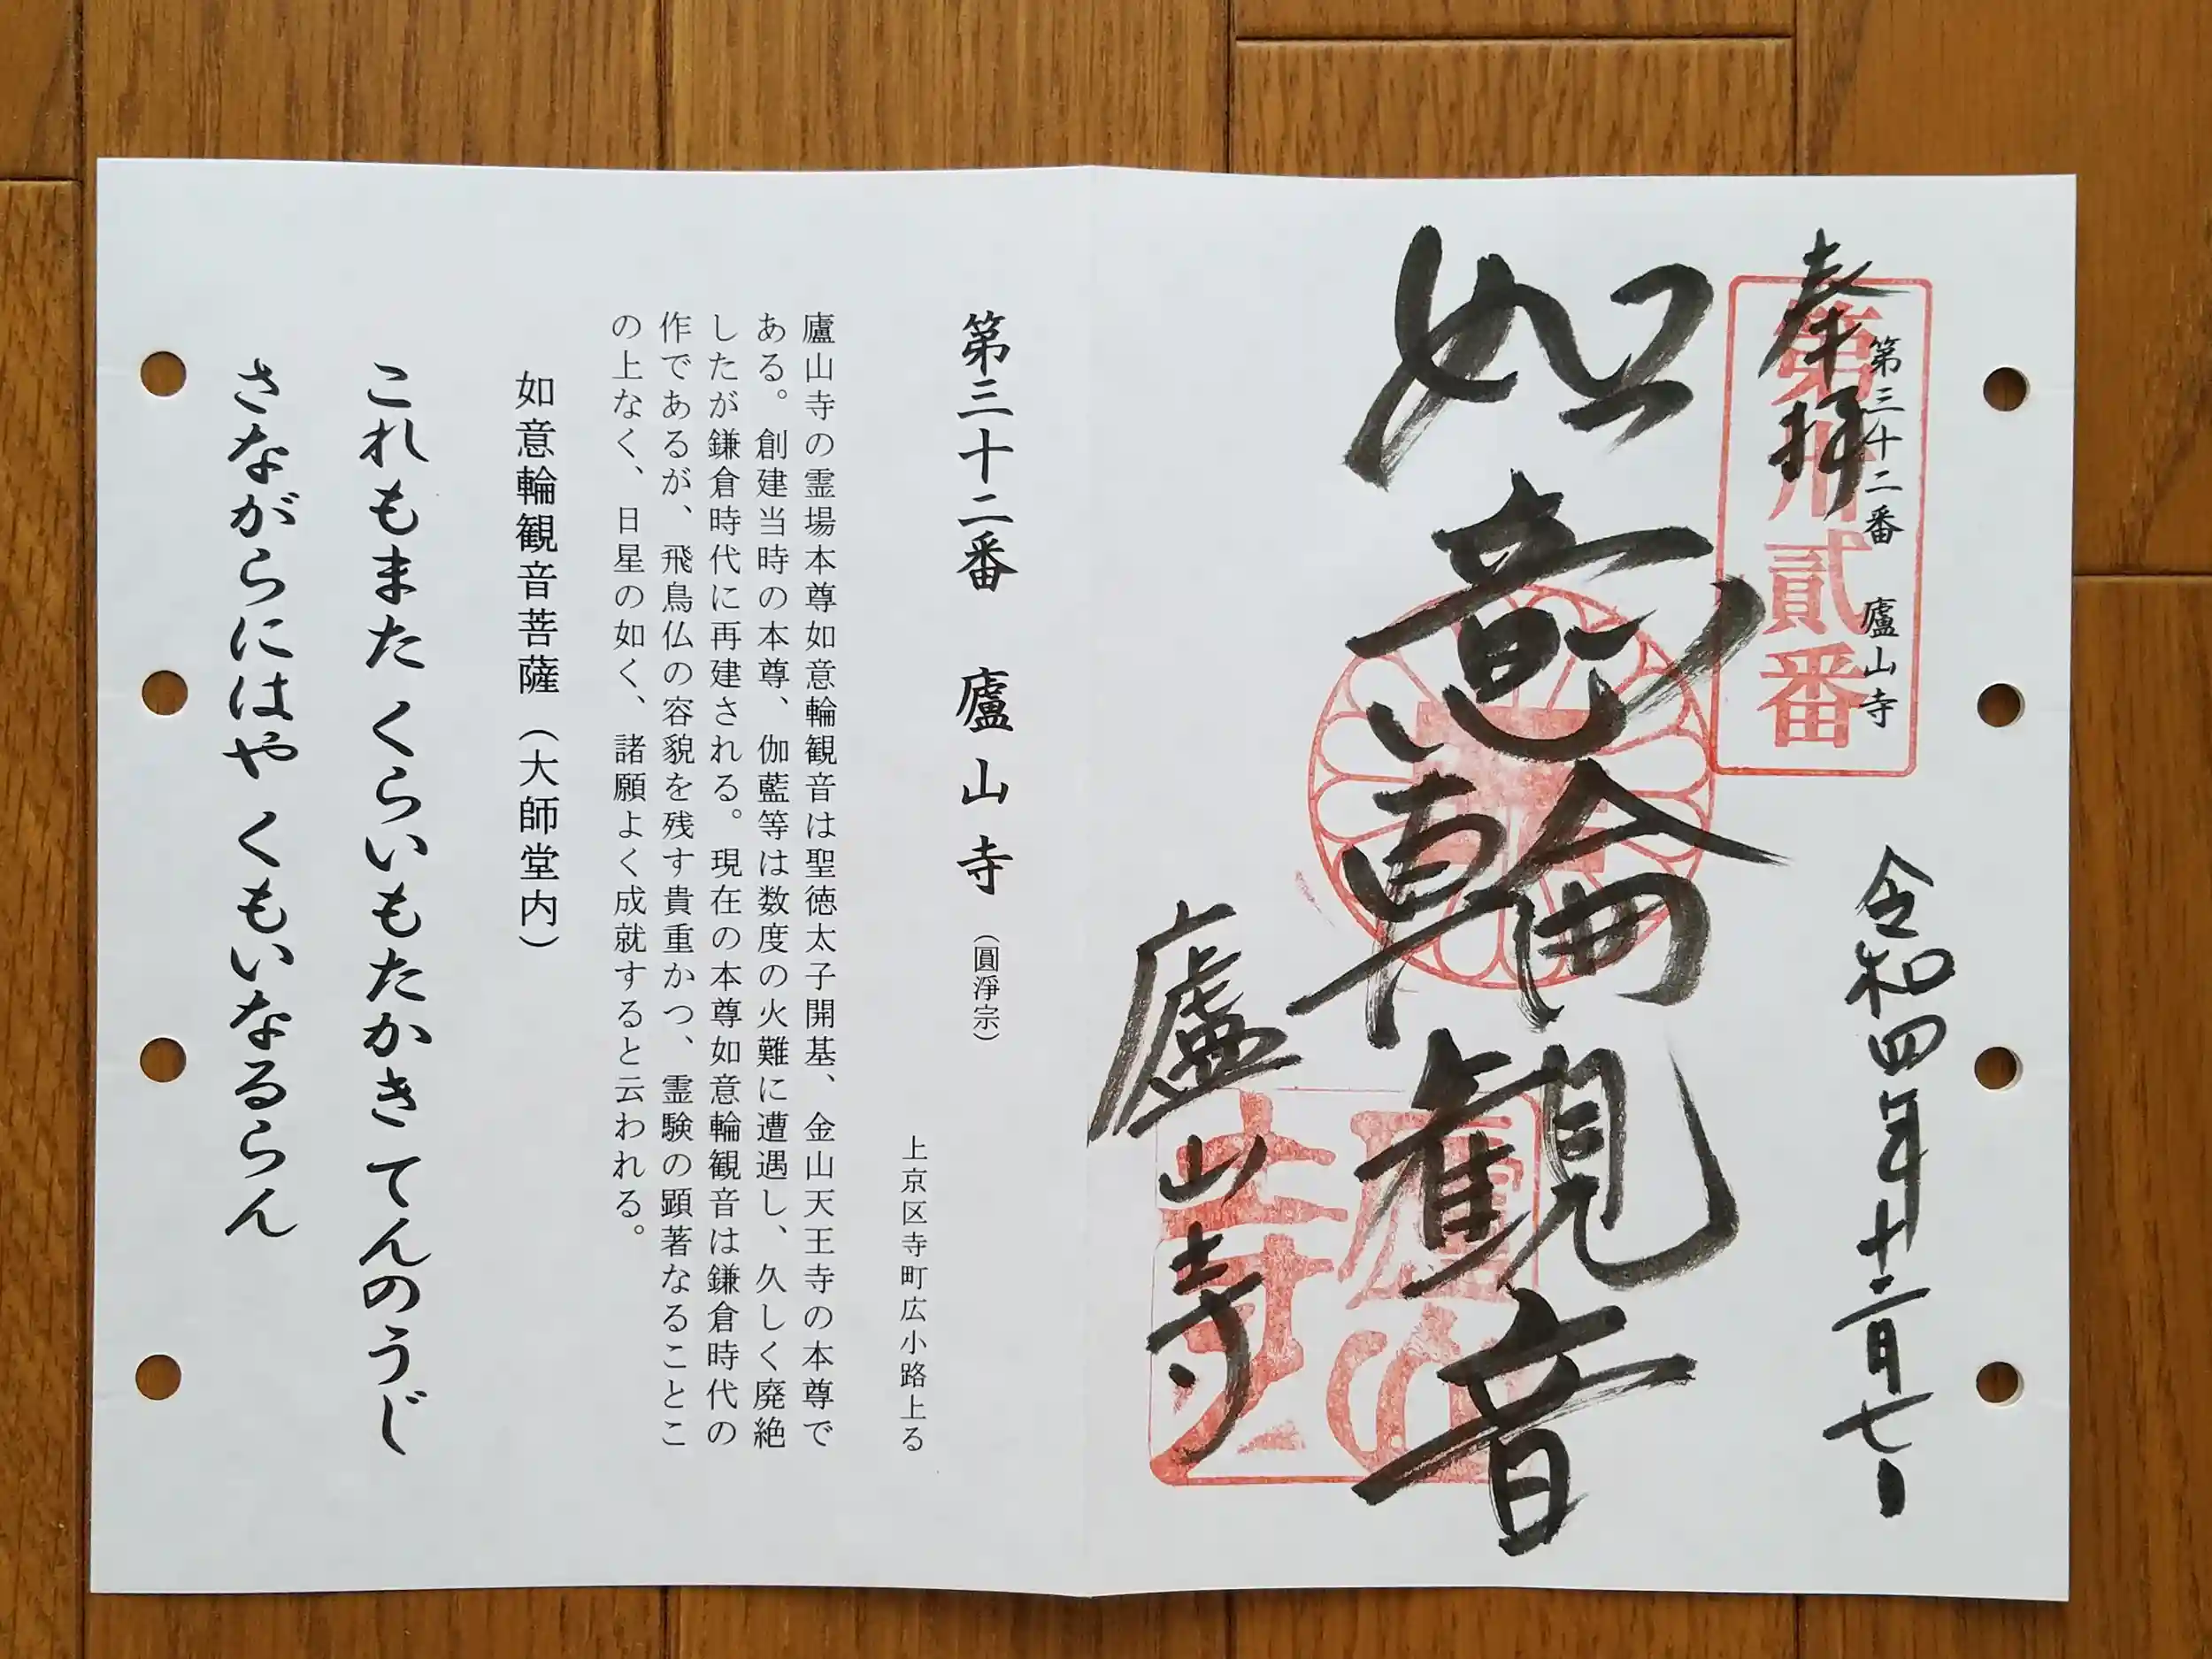 奉拝
第三十二番　廬山寺
第卅貳番
令和四年十二月七日
如意輪観音
廬山寺
第三十二番　廬山寺（圓淨宗）
上京区寺町広小路上る
廬山寺の霊場本尊如意輪観音は聖徳太子開基、金山天王寺の本尊で
ある。創建当時の本尊、伽藍等は数度の火難に遭遇し、久しく廃絶
したが鎌倉時代に再建される。現在の本尊如意輪観音は鎌倉時代の
作であるが、飛鳥仏の容貌を残す貴重かつ、霊験の顕著なることこ
の上なく、日星の如く、諸願よく成就すると云われる。
如意輪観音菩薩（大師堂内）
これもまた くらいもたかき てんのうじ
さながらにはや くもいなるらん